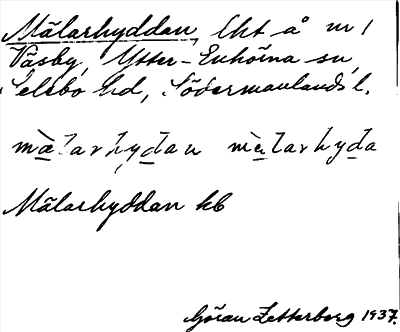 Mälarhyddan, lht å nr 1
Väsby, Ytter-Enhörna sn,
Selebo hd, Södermanlands l.
mälarhydan mälarhyda
Mälarhyddan kb
Göran Zetterberg 1937.